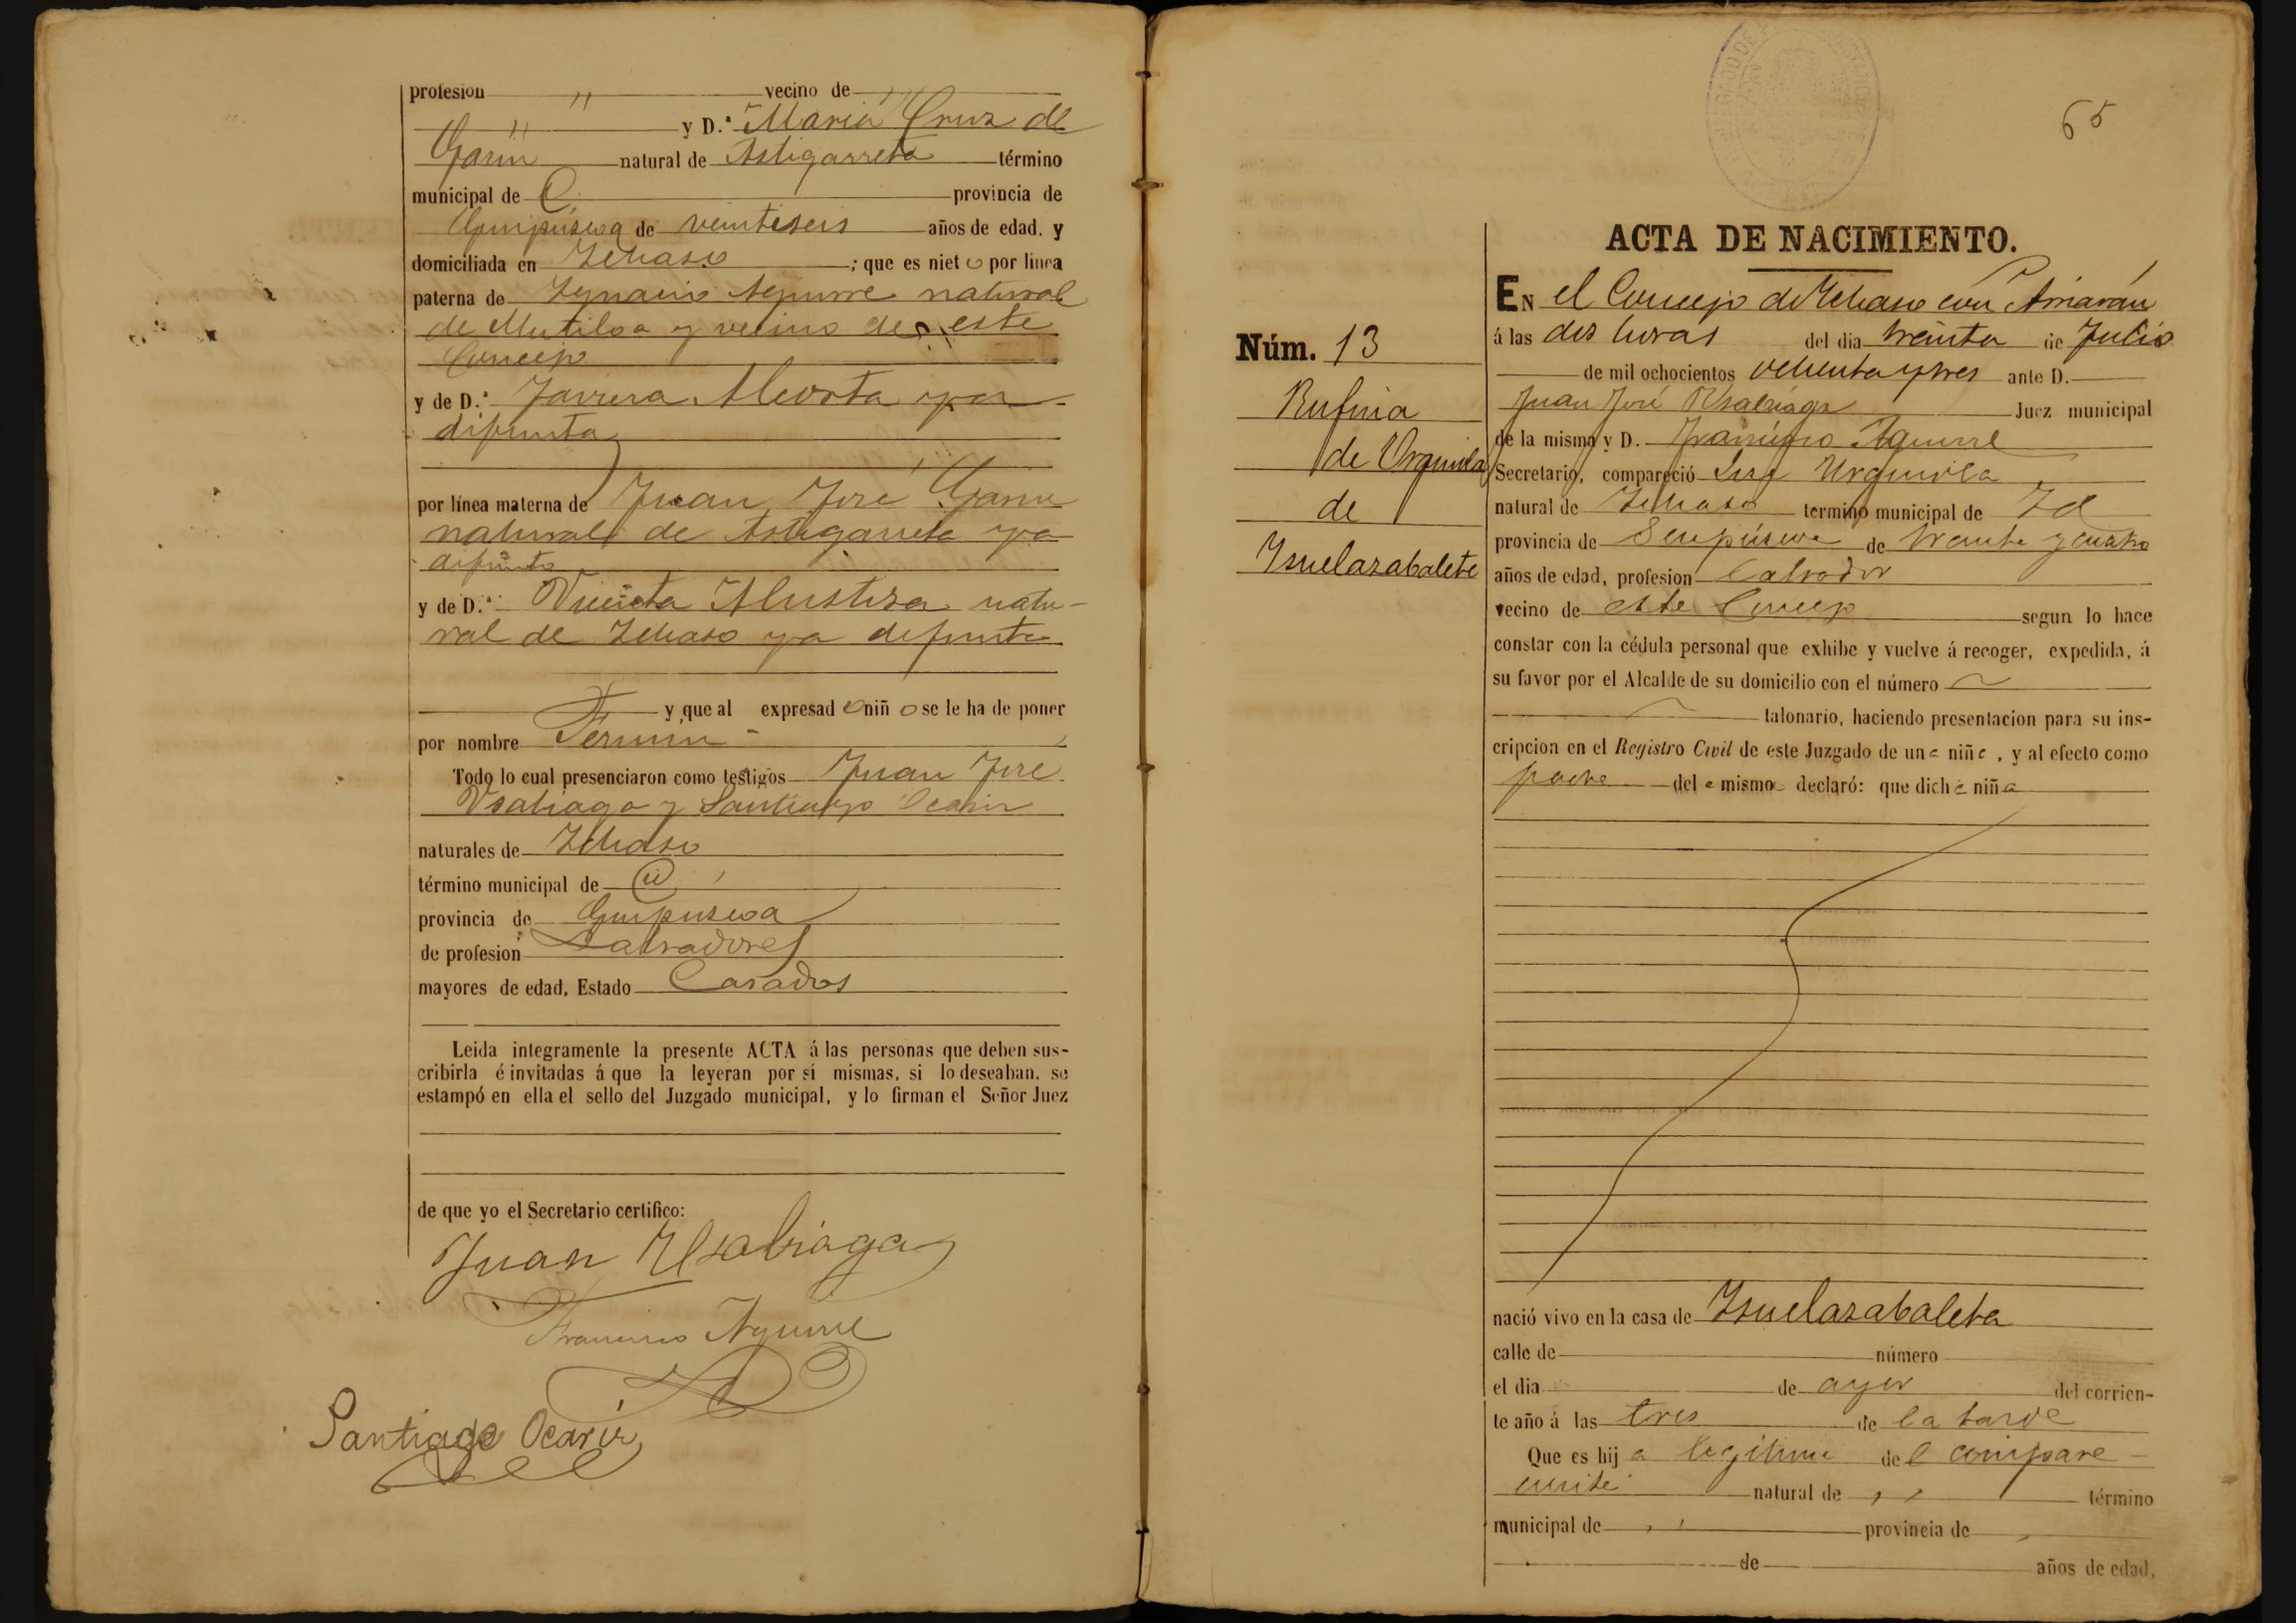 profesion " vecino de "
" y D.ª Maria Cruz de
Garin natural de Astigarreta término
municipal de provincia de
Guipúzcoa de veinteseis años de edad, y
domiciliada en Ichaso ; que es niet o por linea
paterna de Ygnacio Aguirre natural
de Mutiloa y vecino de este
Concejo
y de D.ª Javiera Alcorta ya
difunta
por línea materna de Juan José Garin
natural de Astigarreta ya
difunto
y de D.ª Vicenta Alustiza natu-
ral de Ichaso ya difunta
y que al expresad o niñ o se le ha de poner
por nombre Fermin -
Todo lo cual presenciaron como testigos Juan José
Usabiaga y Santiago Ocariz
naturales de Ichaso
término municipal de
provincia de Guipuzcoa
de profesion Labradores
mayores de edad, Estado Casados
Leida integramente la presente ACTA á las personas que deben sus-
cribirla é invitadas á que la leyeran por sí mismas, si lo deseaban, se
estampó en ella el sello del Juzgado municipal, y lo firman el Señor Juez
de que yo el Secretario certifico:
Juan Usabiaga
Francisco Aguirre
Santiago Ocariz
65
ACTA DE NACIMIENTO.
Núm. 13
Rufina
de Urquiola
de
Ysuelazabaleta
EN el Concejo de Ichaso con Arriarán
á las dos horas del dia treinta de Julio
de mil ochocientos ochenta y tres ante D.
Juan José Usabiaga Juez municipal
de la misma y D. Francisco Aguirre
Secretario, compareció José Urquiola
natural de Ichaso termino municipal de Id
provincia de Guipúzcoa de treinta y cuatro
años de edad, profesion Labrador
vecino de este Concejo segun lo hace
constar con la cédula personal que exhibe y vuelve á recoger, expedida, á
su favor por el Alcalde de su domicilio con el número
talonario, haciendo presentacion para su ins-
cripcion en el Registro Civil de este Juzgado de una niña, y al efecto como
padre del a misma declaró: que dicha niña
nació vivo en la casa de Ysuelazabaleta
calle de número
el dia de ayer del corrien-
te año á las tres de la tarde
Que es hij a legitima de l compare-
ciente natural de " término
municipal de " provincia de "
de años de edad,